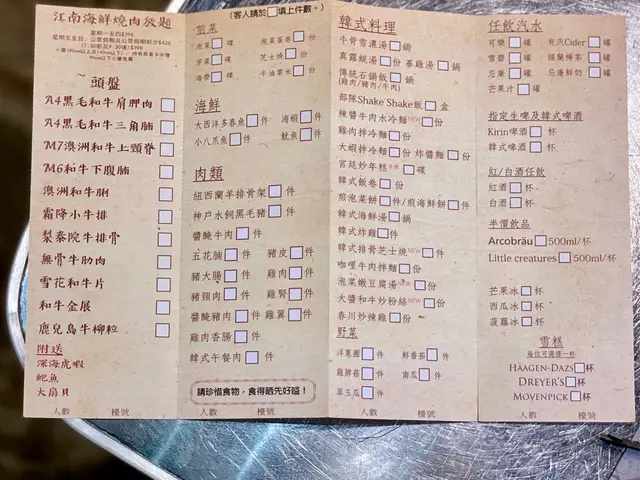 江南海鮮燒肉放題
星期一至四$398
星期五至日、公眾假期及公眾假期前夕$428
頭盤
A4黑毛和牛肩胛肉
A4黑毛和牛三角腩
M7澳洲和牛上頸脊
M6和牛下腹腩
澳洲和牛脷
霜降小牛排
梨泰院牛排骨
無骨牛肋肉
雪花和牛片
和牛金展
鹿兒島牛柳粒
附送
深海虎蝦
鮑魚
大扇貝
人數 檯號
(客人請於 填上件數。)
前菜
泡菜 碟 泡菜蛋卷 份
芽菜 碟 芝士燒 份
海帶 碟 牛油粟米 份
海鮮
大西洋多春魚 件 海蝦 件
小八爪魚 件 魷魚 件
肉類
紐西蘭羊排骨架 件
神戶水飼黑毛豬 件
醬醃牛肉 件
五花腩 件 豬皮 件
豬大腸 件 雞肉 件
豬頸肉 件 雞腎 件
醬醃豬肉 件 雞翼 件
雞肉香腸 件
韓式午餐肉 件
請珍惜食物，食得晒先好嗌！
人數 檯號
韓式料理
牛骨雪濃湯 鍋
真露蜆湯 份 蔘雞湯 鍋
傳統石鍋飯 鍋
(雞肉/豬肉/牛肉)
部隊Shake Shake飯 盒
辣醬牛肉水冷麵NEW 份
雞肉拌冷麵 份
大蝦拌冷麵 份 炸醬麵 份
宮廷炒年糕 碟
韓式飯卷 份
煎泡菜餅 件/煎海鮮餅 件
韓式海鮮湯 鍋
韓式炸雞 件
韓式排骨芝士燒NEW 件
咖喱牛肉拌麵 份
泡菜嫩豆腐湯NEW 份
大醬和牛炒粉絲NEW 份
春川炒辣雞 份
野菜
洋蔥圈 件 鮮番茄 件
雞脾菇 件 南瓜 件
翠玉瓜 件
人數 檯號
任飲汽水
可樂 罐 有汽Cider 罐
雪碧 罐 錫蘭檸茶 罐
忌廉 罐 忌廉鮮奶 罐
芒果汁 罐
指定生啤及韓式啤酒
Kirin啤酒 杯
韓式啤酒 杯
紅/白酒任飲
紅酒 杯
白酒 杯
半價飲品
Arcobräu 500ml/杯
Little creatures 500ml/杯
芒果冰 杯
西瓜冰 杯
菠蘿冰 杯
雪糕
每位可選擇一杯
HÄAGEN-DAZS 杯
DREYER'S 杯
MOVENPICK 杯
人數 檯號